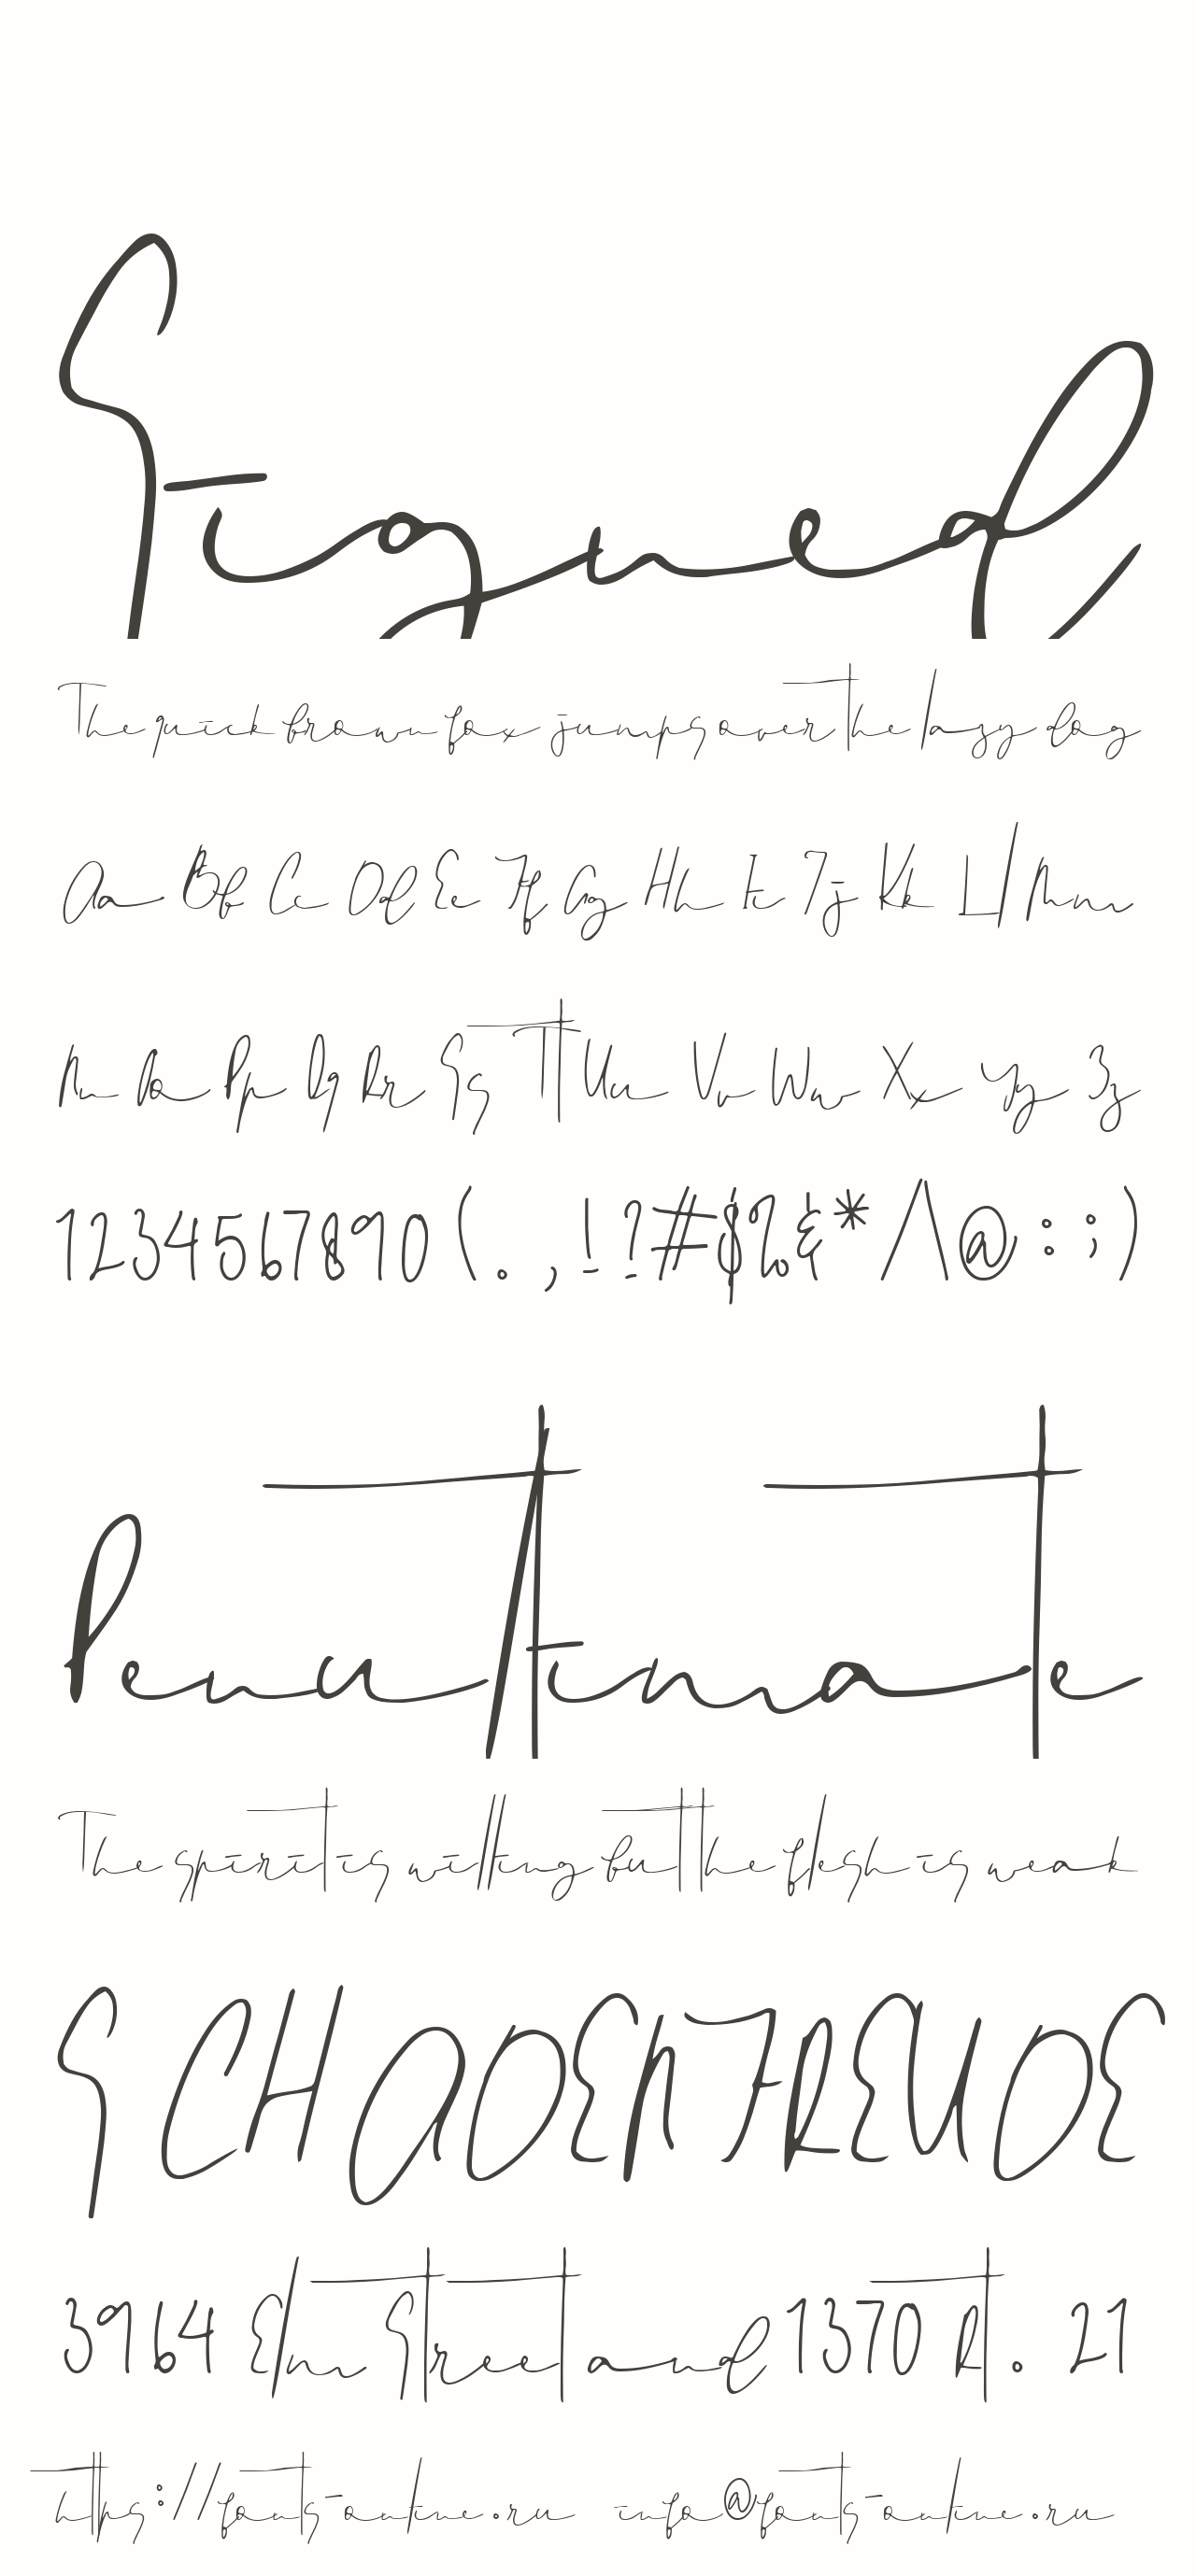 Signed,
The quick brown fox jumps over the lazy dog
Aa Bb Cc Dd Ee Ff Gg Hh Ii Jj Kk Ll Mm
Nn Oo Pp Qq Rr Ss Tt Uu Vv Ww Xx Yy Zz
1234567890 (. , ! ? # $ % & * / \ @ : ; )
Penultimate
The spirit is willing but the flesh is weak
SCHADENFREUDE
3964 Elm Street and 1370 Rt. 21
https://fonts-online.ru info@fonts-online.ru